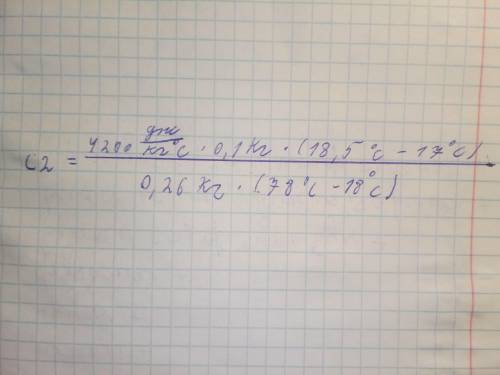 C2 = 4200 дж/кг°C · 0,1 кг · (18,5°C - 17°C)
0,26 кг · (78°C - 18°C)